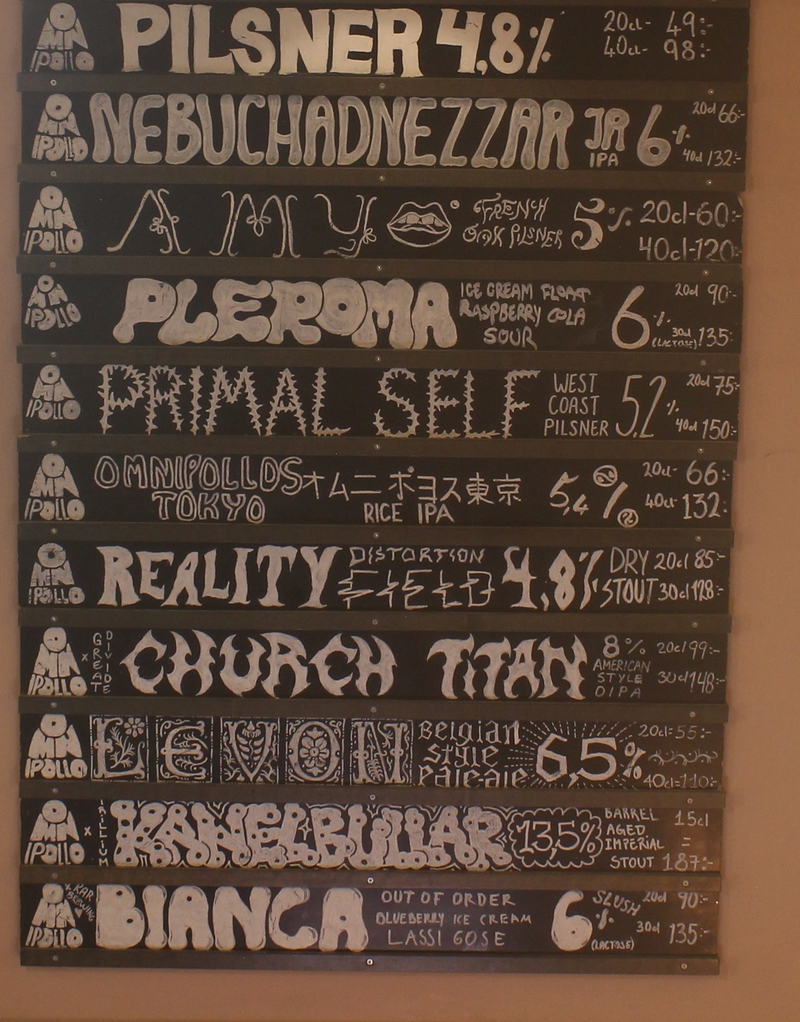 OMNIPOLLO PILSNER 4,8% 20cl- 49:-
40cl- 98:-
OMNIPOLLO NEBUCHADNEZZAR JR IPA 6% 20cl 66:-
40cl 132:-
OMNIPOLLO AMY FRENCH OAK PILSNER 5% 20cl-60:-
40cl-120:-
OMNIPOLLO PLEROMA ICE CREAM FLOAT
RASPBERRY COLA
SOUR
6% (LACTOSE) 20cl 90:-
30cl 135:-
OMNIPOLLO PRIMAL SELF WEST
COAST
PILSNER
5,2% 20cl 75:-
40cl 150:-
OMNIPOLLO OMNIPOLLOS
TOKYO
オムニポヨス東京
RICE IPA
5,4% 20cl- 66:-
40cl- 132:-
OMNIPOLLO REALITY DISTORTION
FIELD
4,8% DRY
STOUT
20cl 85:-
30cl 128:-
OMNIPOLLO x GREAT DIVIDE CHURCH TITAN 8%
AMERICAN
STYLE
DIPA
20cl 99:-
30cl 148:-
OMNIPOLLO LEVON Belgian
style
Pale ale
6,5% 20cl=55:-
40cl=110:-
OMNIPOLLO x TRILLIUM KANELBULLAR 13,5% BARREL
AGED
IMPERIAL
STOUT
15cl
=
187:-
OMNIPOLLO BIANCA OUT OF ORDER
BLUEBERRY ICE CREAM
LASSI GOSE
6% (LACTOSE) SLUSH 20cl 90:-
30cl 135:-